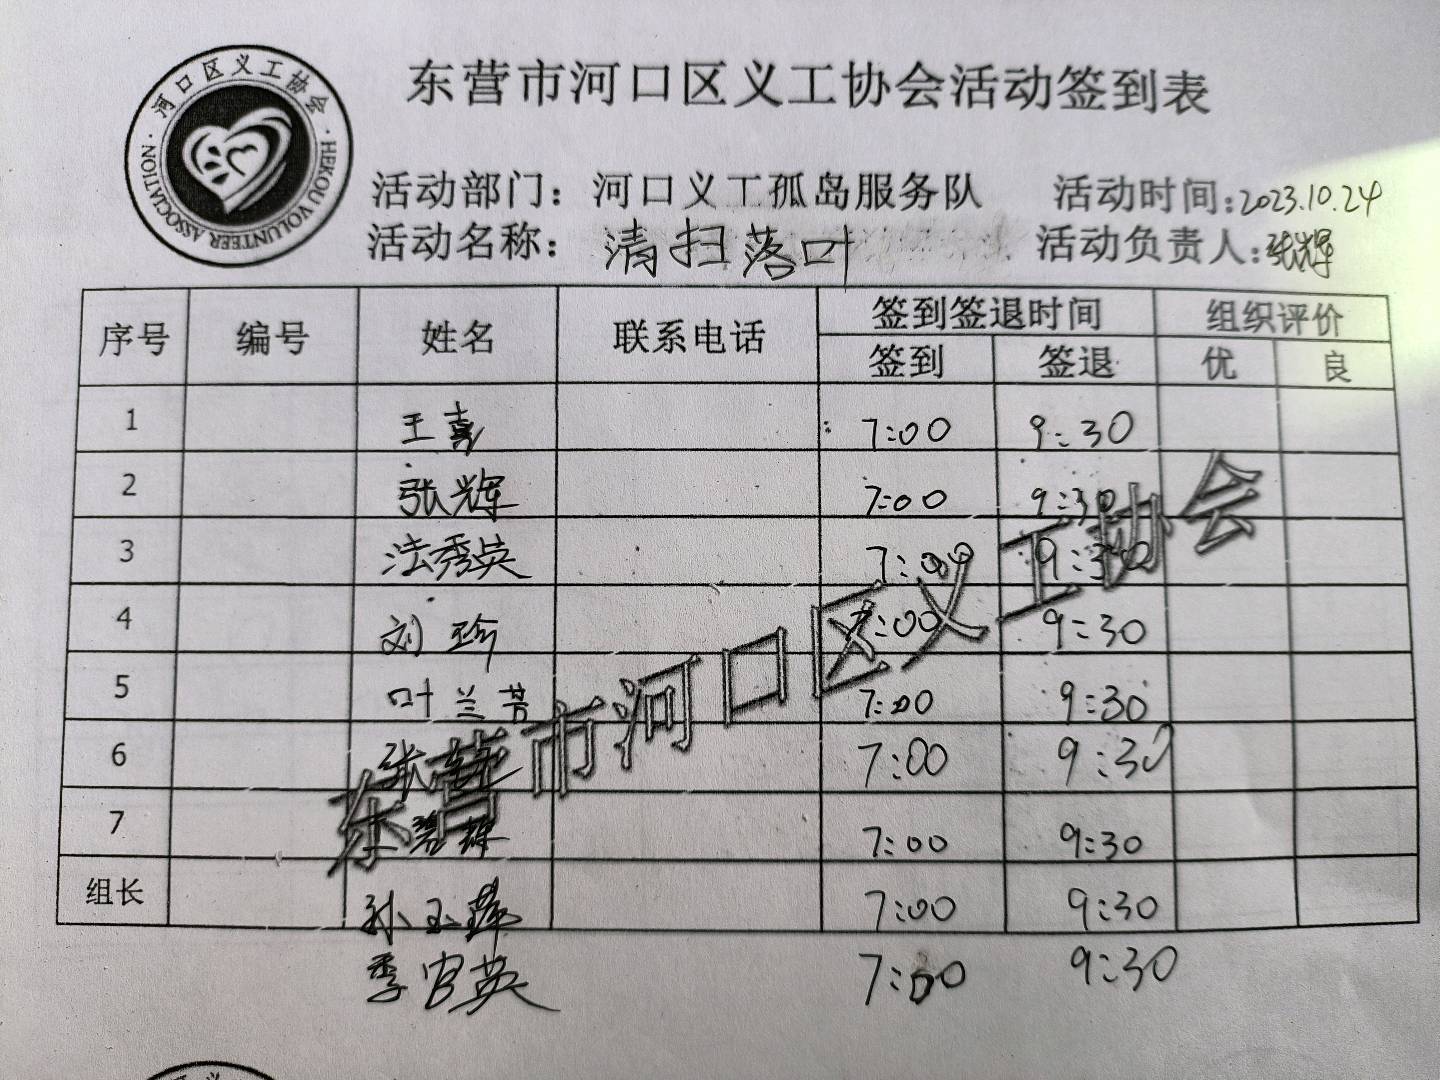 河口区义工协会
HEKOU VOLUNTEER ASSOCIATION
东营市河口区义工协会活动签到表
活动部门：河口义工孤岛服务队 活动时间：2023.10.24
活动名称：清扫落叶 活动负责人：张辉
序号 编号 姓名 联系电话 签到签退时间 组织评价
签到 签退 优 良
1 王喜 7:00 9:30
2 张辉 7:00 9:30
3 法秀英 7:00 9:30
4 刘玲 7:00 9:30
5 叶兰芳 7:00 9:30
6 张 7:00 9:30
7 7:00 9:30
组长 孙玉萍 7:00 9:30
季官英 7:00 9:30
东营市河口区义工协会